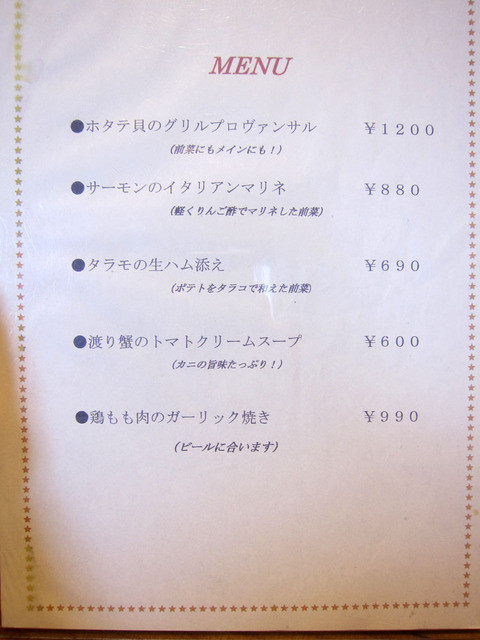 MENU
●ホタテ貝のグリルプロヴァンサル ￥１２００
（前菜にもメインにも！）
●サーモンのイタリアンマリネ ￥８８０
（軽くりんご酢でマリネした前菜）
●タラモの生ハム添え ￥６９０
（ポテトをタラコで和えた前菜）
●渡り蟹のトマトクリームスープ ￥６００
（カニの旨味たっぷり！）
●鶏もも肉のガーリック焼き ￥９９０
（ビールに合います）